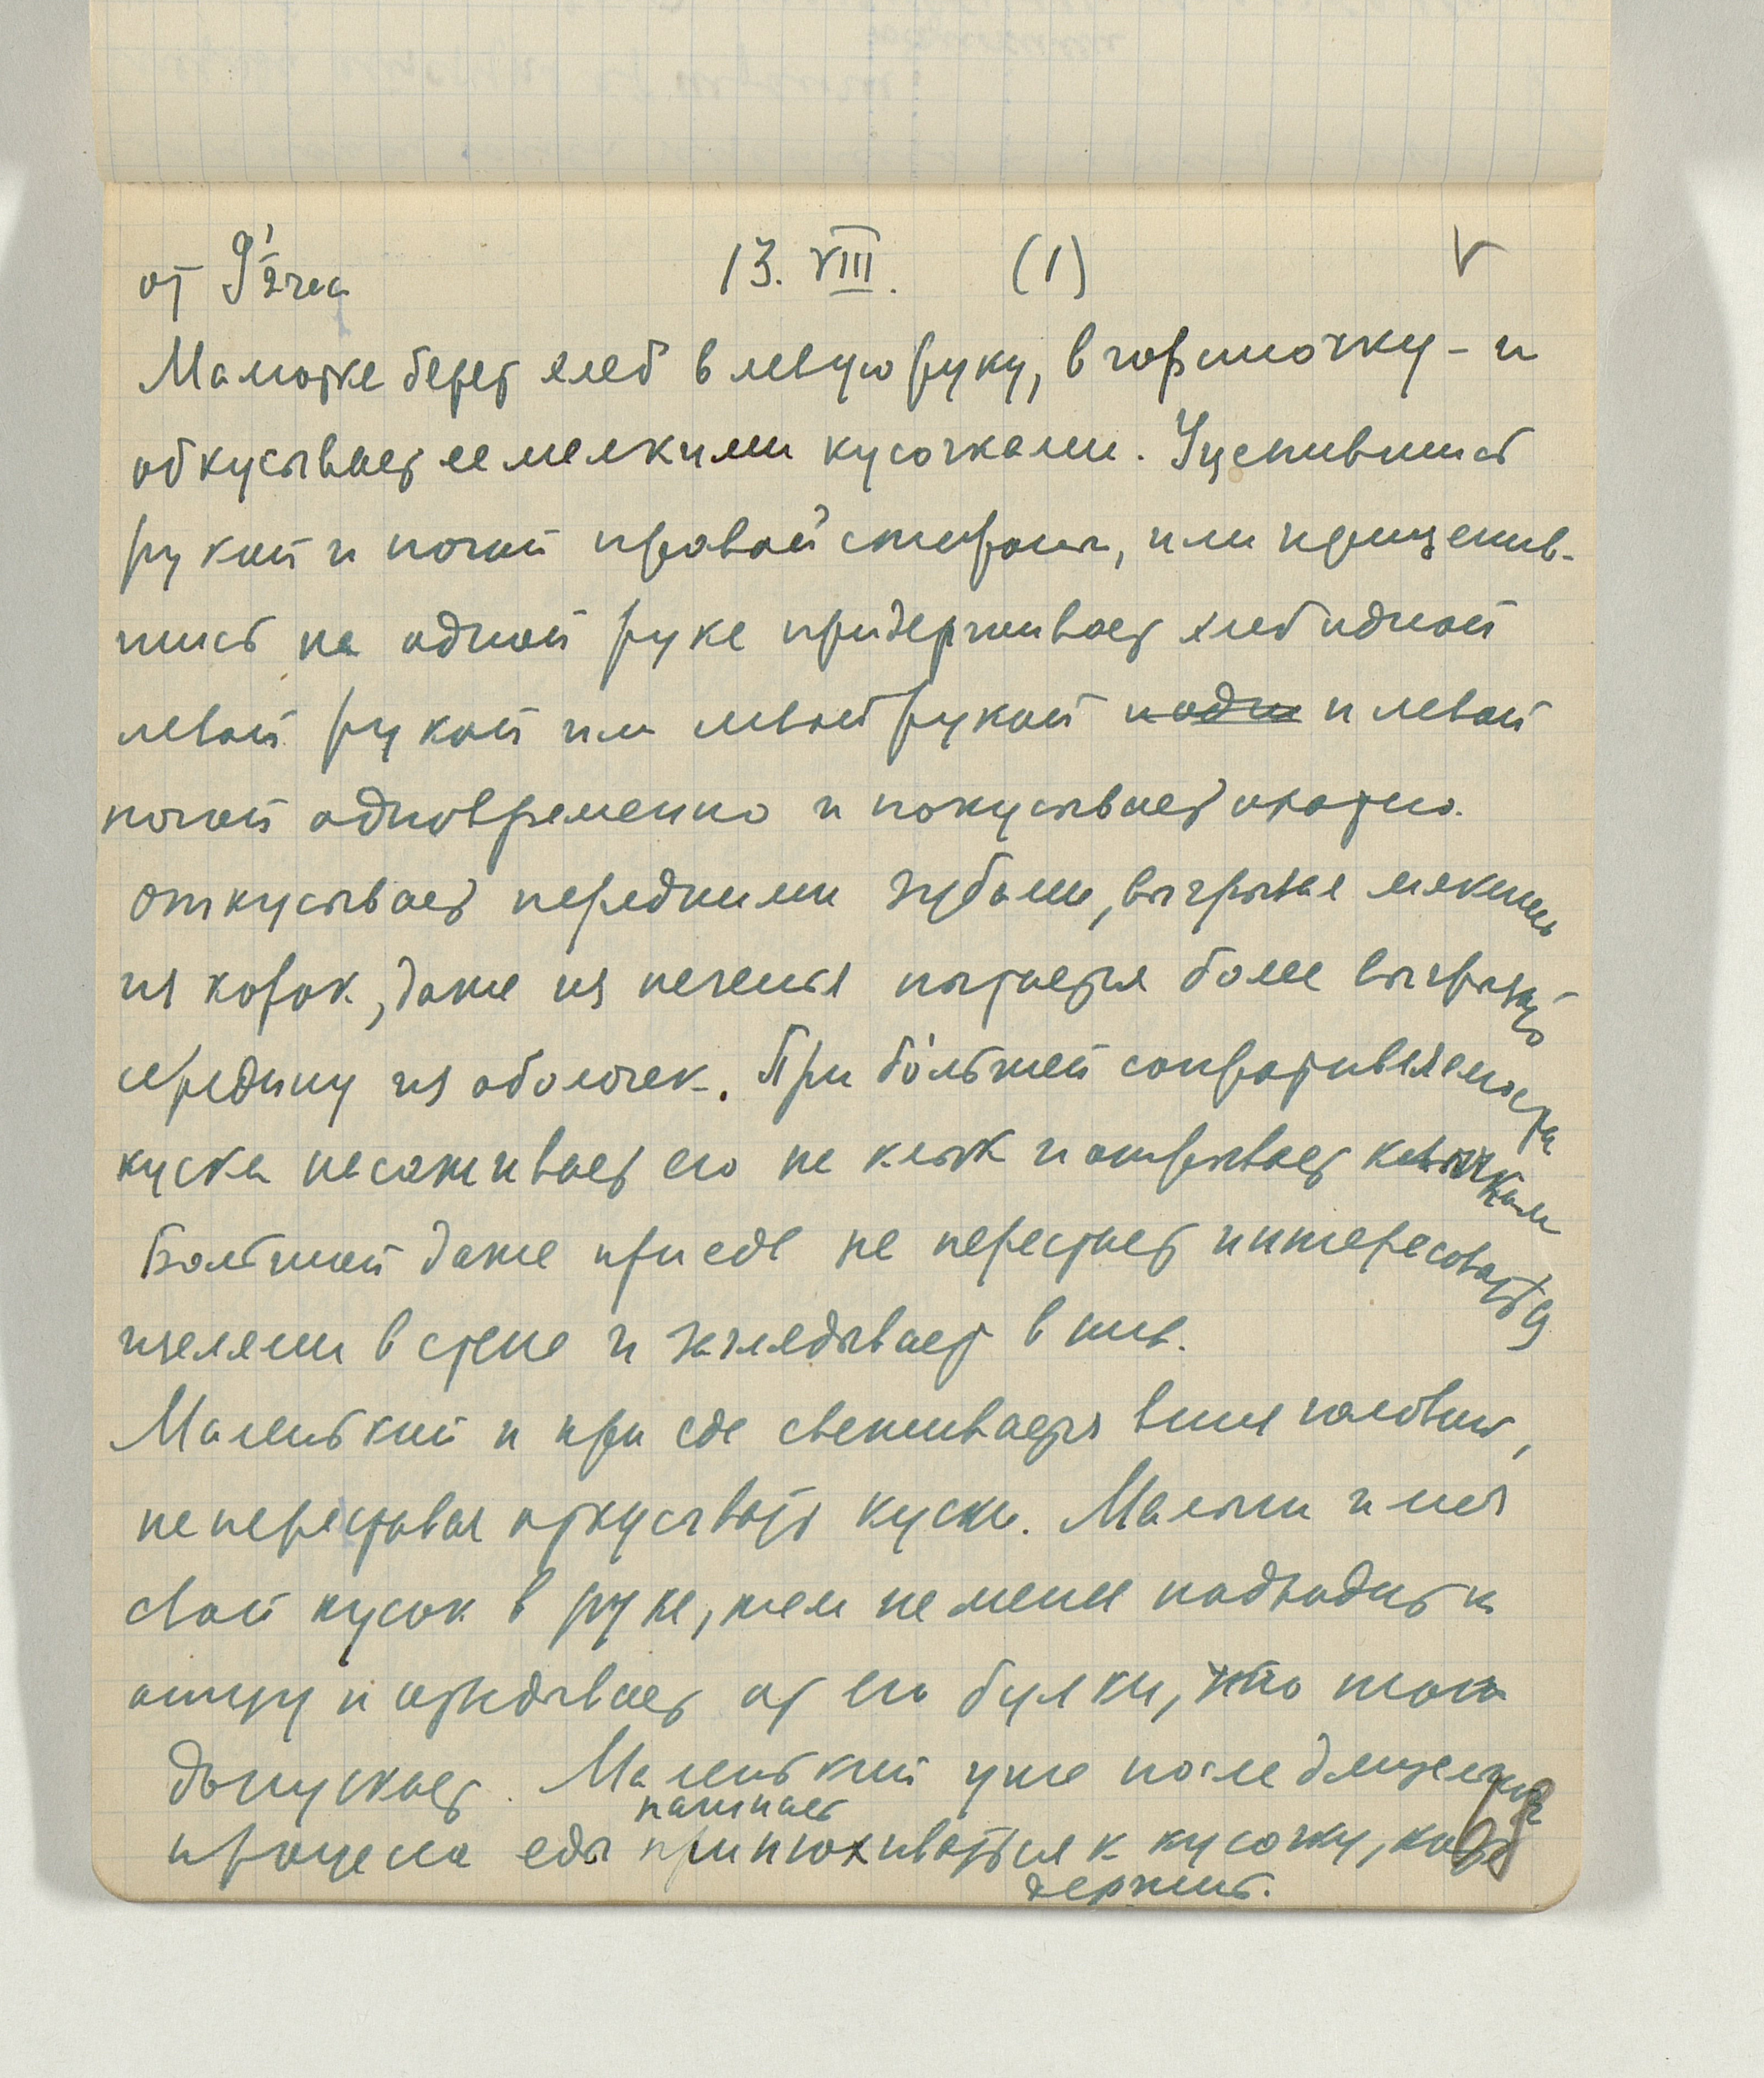 от 9 1/2 час 13. VIII. (1) V
Малютке берет хлеб в левую руку, в горсточку – и
обкусывает ее мелкими кусочками. Уцепившись
рукой и ногой правой стороны, или прицепив-
шись на одной руке придерживает хлеб одной
левой рукой или левой рукой и левой
ногой одновременно и покусывает охотно.
откусывает передними зубами, выгрызая мякиш
из корок, даже из печенья пытается более выгрызать
середину из оболочек. При бо́льшей сопротивляемости
куска насаживает его на клык и отрывает клычками
Большой даже при еде не перестает интересоваться
щелями в стене и заглядывает в них.
Маленький и при еде свешивается вниз головой,
не переставая откусывать куски. Малыш имея
свой кусок в руке, тем не менее подходит к
отцу и отъедывает от его булки, что тот
допускает. Маленький уже после длительного
процесса еды начинает принюхиваться к кусочку, когда
держит.